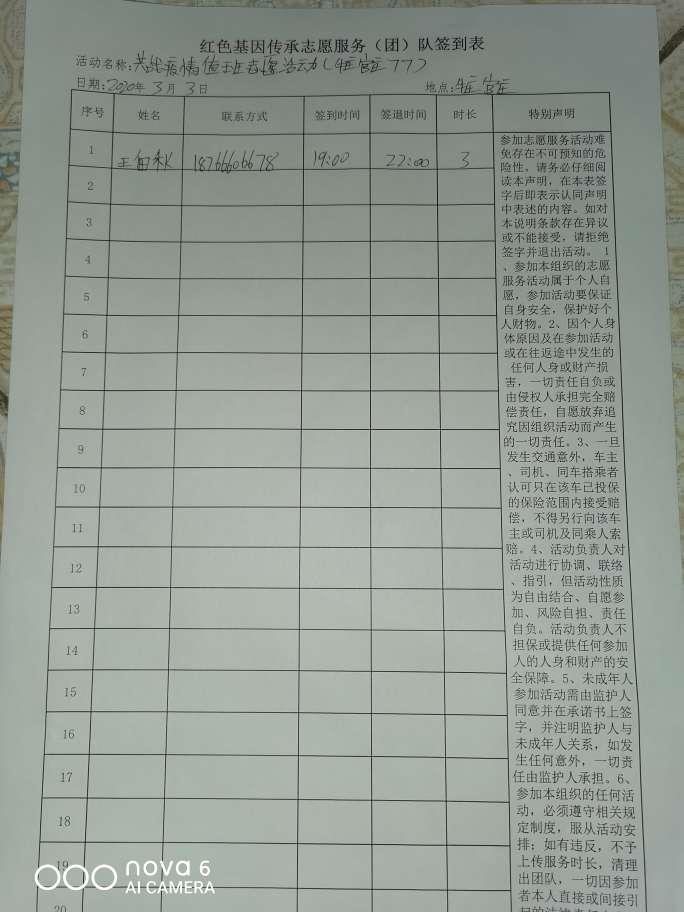 红色基因传承志愿服务（团）队签到表
活动名称：共战疫情值班志愿活动（牛官庄77）
日期：2020年3月3日 地点：牛官庄
序号 姓名 联系方式 签到时间 签退时间 时长 特别声明
1 王 秋 18766606678 19:00 22:00 3
2
3
4
5
6
7
8
9
10
11
12
13
14
15
16
17
18
19
20
参加志愿服务活动难
免存在不可预知的危
险性，请务必仔细阅
读本声明，在本表签
字后即表示认同声明
中表述的内容。如对
本说明条款存在异议
或不能接受，请拒绝
签字并退出活动。 1
、参加本组织的志愿
服务活动属于个人自
愿，参加活动要保证
自身安全，保护好个
人财物。2、因个人身
体原因及在参加活动
或在往返途中发生的
任何人身或财产损
害，一切责任自负或
由侵权人承担完全赔
偿责任，自愿放弃追
究因组织活动而产生
的一切责任。3、一旦
发生交通意外，车主
、司机、同车搭乘者
认可只在该车已投保
的保险范围内接受赔
偿，不得另行向该车
主或司机及同乘人索
赔。4、活动负责人对
活动进行协调、联络
、指引，但活动性质
为自由结合、自愿参
加、风险自担、责任
自负。活动负责人不
担保或提供任何参加
人的人身和财产的安
全保障。5、未成年人
参加活动需由监护人
同意并在承诺书上签
字，并注明监护人与
未成年人关系，如发
生任何意外，一切责
任由监护人承担。6、
参加本组织的任何活
动，必须遵守相关规
定制度，服从活动安
排；如有违反，不予
上传服务时长，清理
出团队，一切因参加
者本人直接或间接引
起的法律责任
nova 6
AI CAMERA